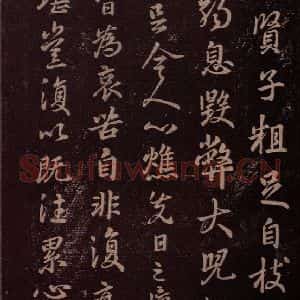 賢子粗足自枝
弱息毀弊大兒
令人心燋先日之
為哀苦自非復
堂復以既注累心
Shufawang.CN